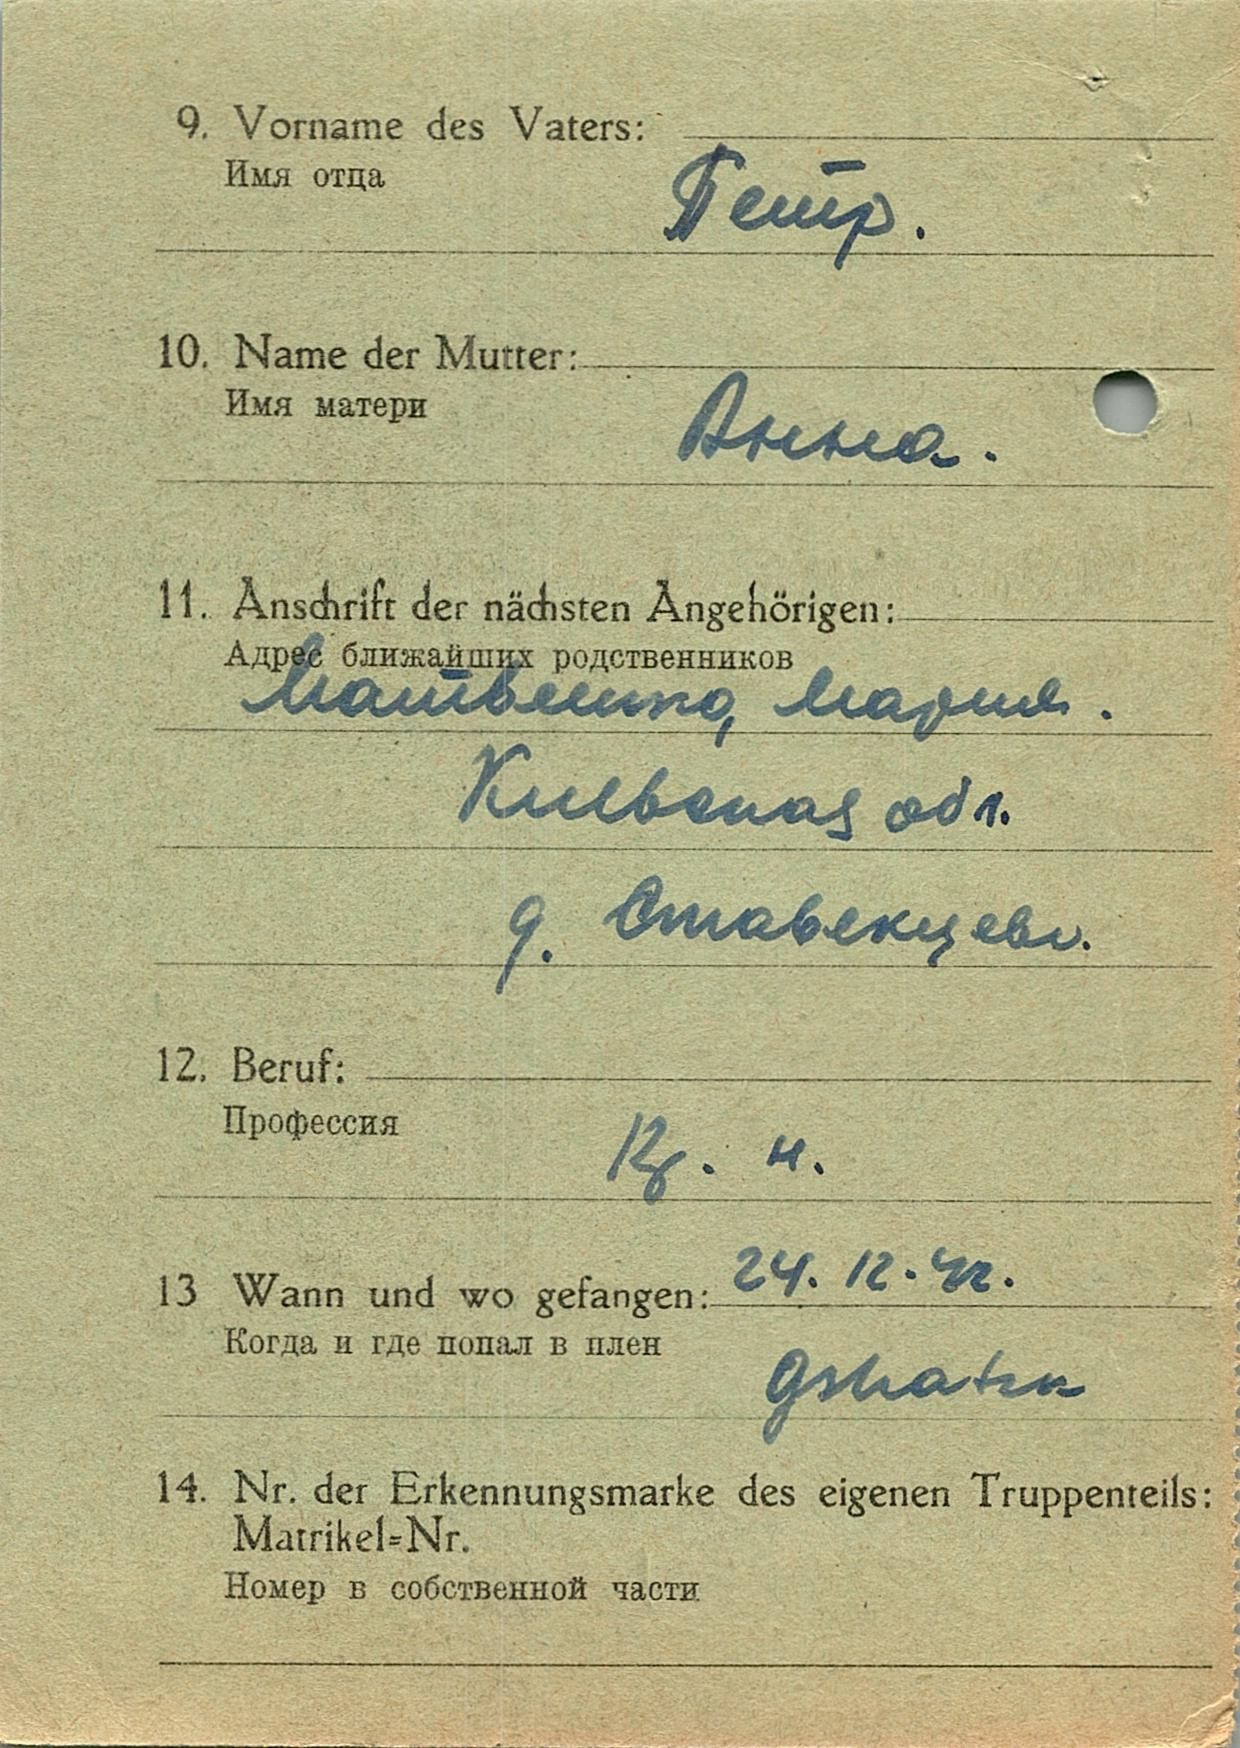 9. Vorname des Vaters:
Имя отца
Петр.
10. Name der Mutter:
Имя матери
Анна.
11. Anschrift der nächsten Angehörigen:
Адрес ближайших родственников
Матвейко, Мария.
Киевская обл.
д.
12. Beruf:
Профессия
13 Wann und wo gefangen: 24. 12. 42.
Когда и где попал в плен
Gshatsk
14. Nr. der Erkennungsmarke des eigenen Truppenteils:
Matrikel=Nr.
Номер в собственной части